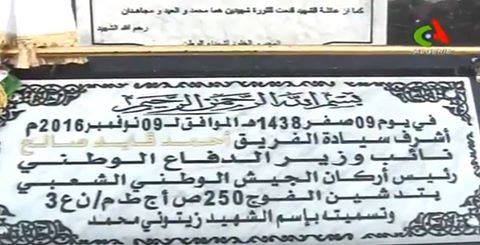 كما أن عائلة الشهيد قدمت للثورة شهيدين هما محمد و العيد و مجاهدان
رحم الله الشهيد
المجد و الخلود لشهداء
ALGERIE
بسم الله الرحمن الرحيم
في يوم 09 صفر 1438هـ الموافق لـ 09 نوفمبر 2016م
أشرف سيادة الفريق أحمد قايد صالح
نائب وزير الدفاع الوطني
رئيس أركان الجيش الوطني الشعبي
بتدشين الفوج 250 ص أ ج ط م/ن ع 3
وتسميته بإسم الشهيد زيتوني محمد